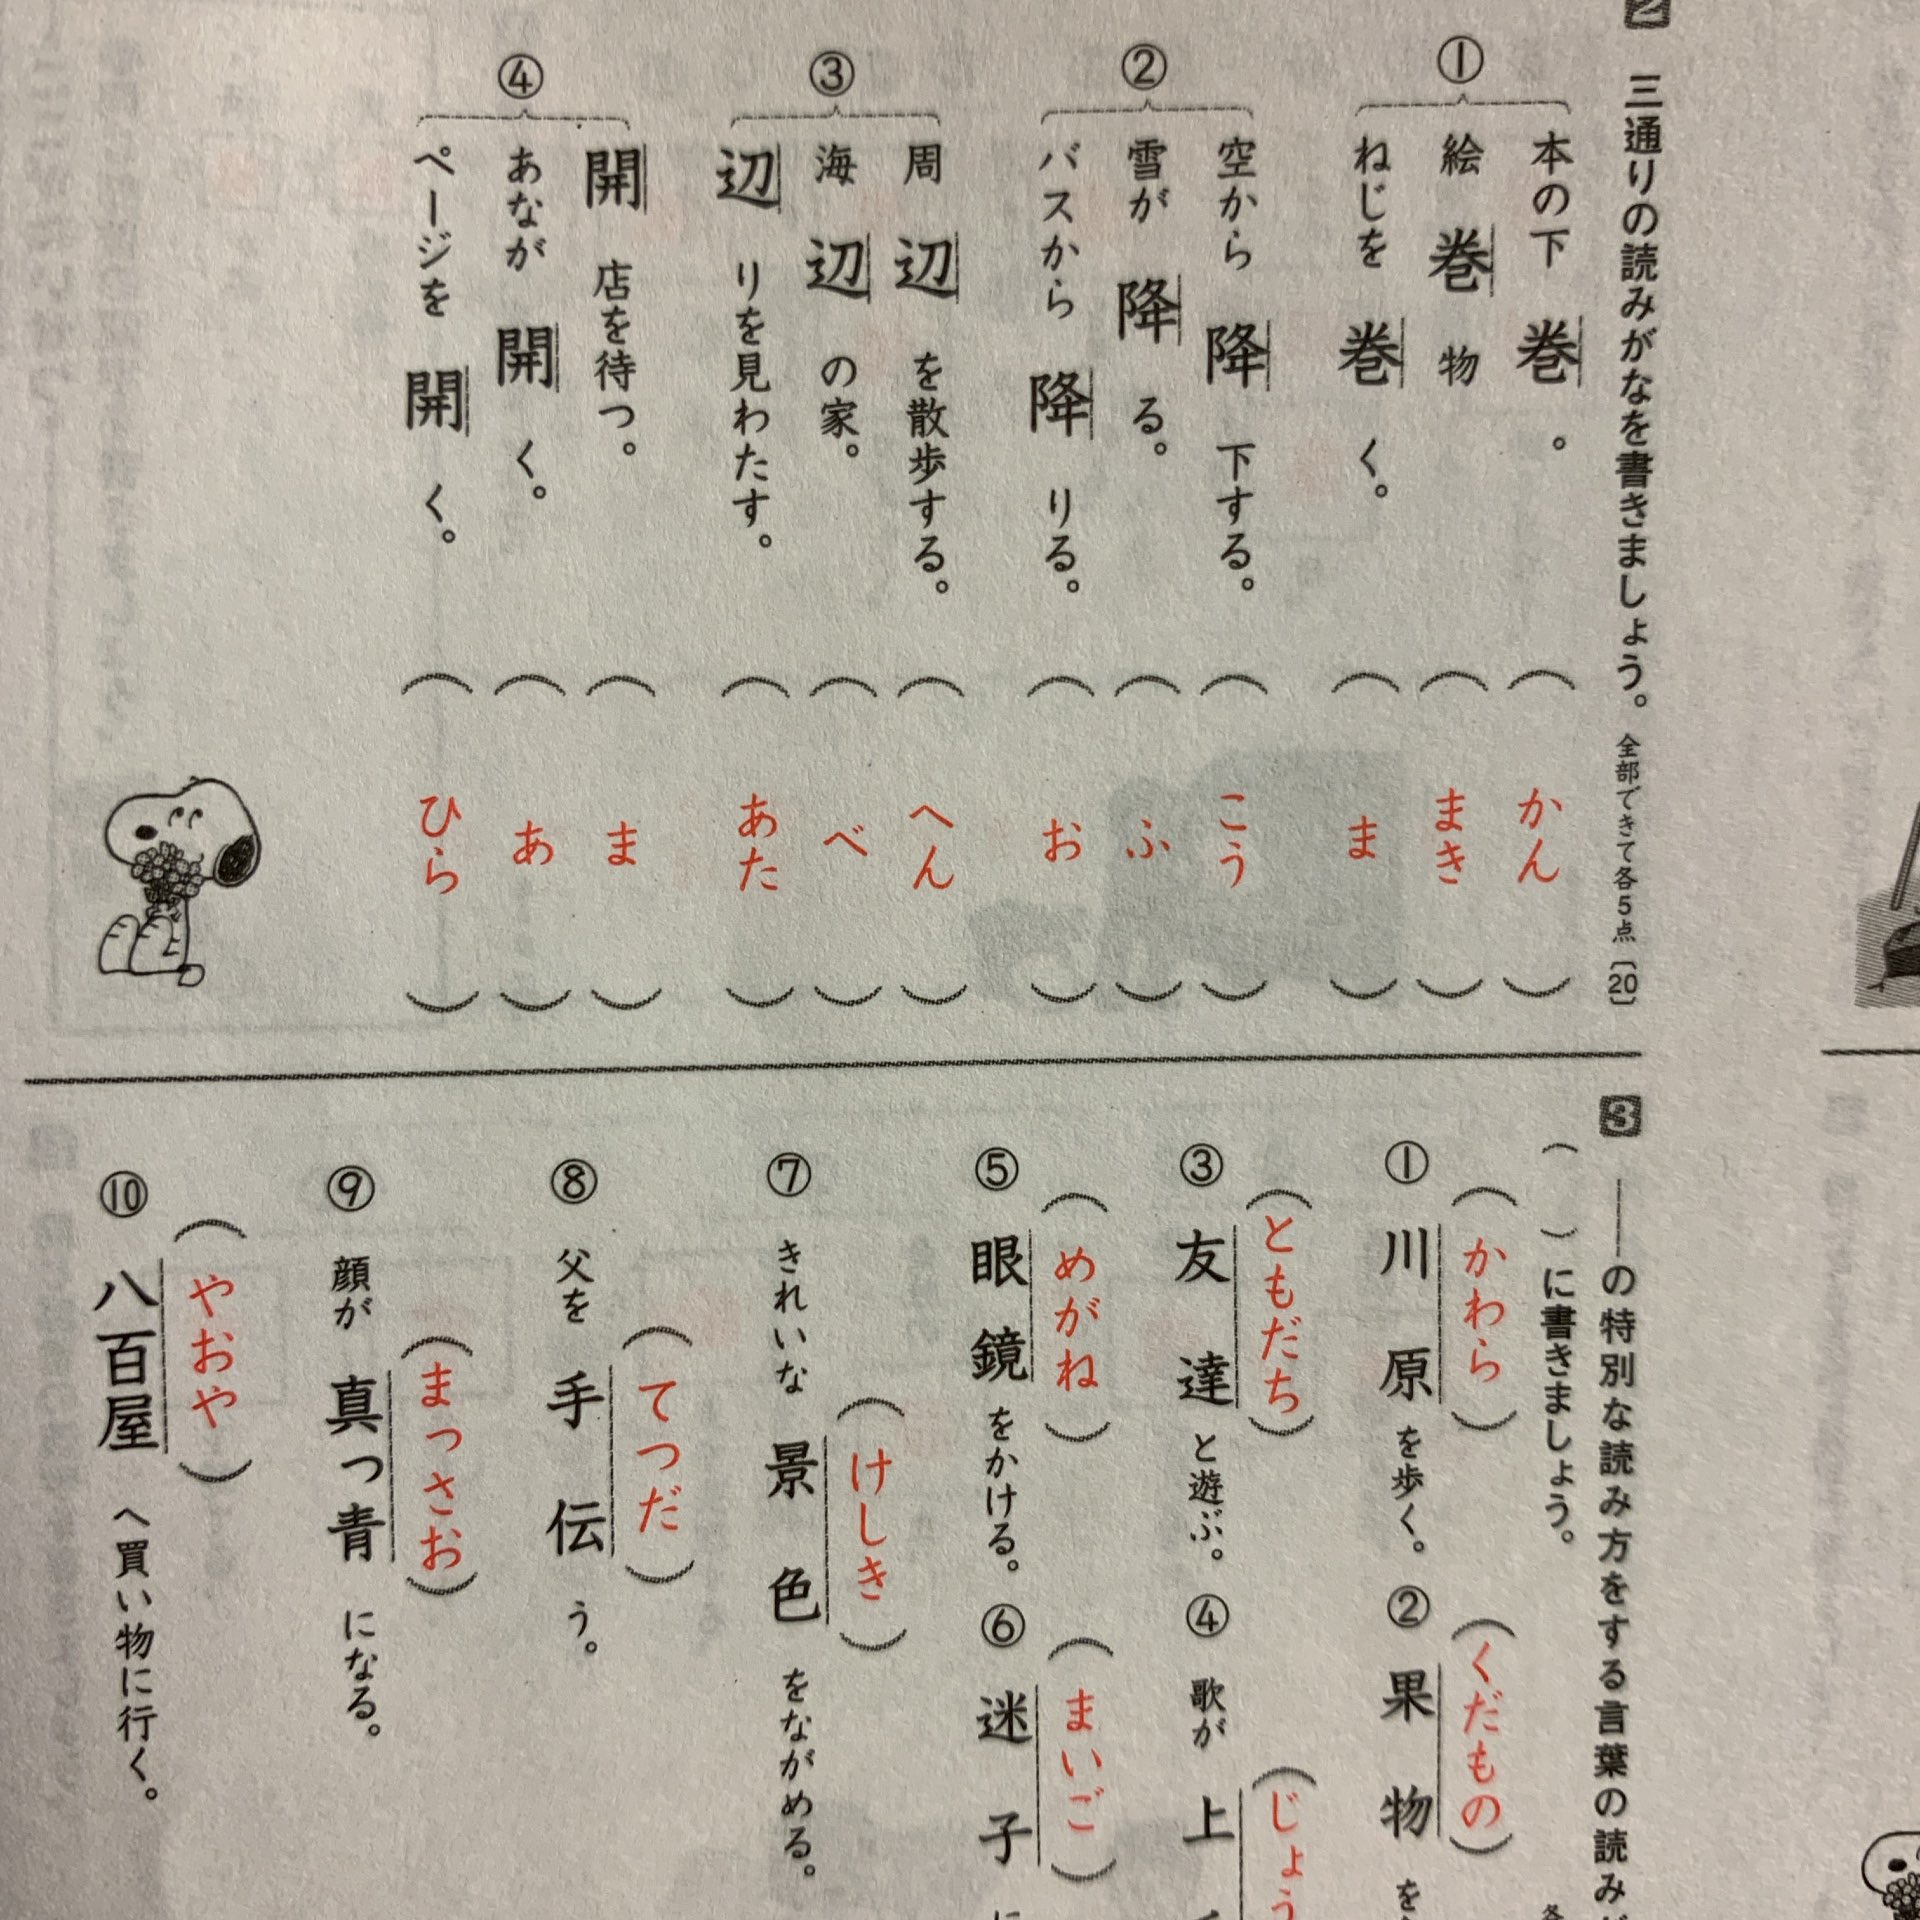 2 三通りの読みがなを書きましょう。 全部できて各5点〔20〕
①
本の下巻。(かん)
絵巻物(まき)
ねじを巻く。(ま)
②
空から降下する。(こう)
雪が降る。(ふ)
バスから降りる。(お)
③
周辺を散歩する。(へん)
海辺の家。(べ)
辺りを見わたす。(あた)
④
開店を待つ。(ま)
あなが開く。(あ)
ページを開く。(ひら)
3 ――の特別な読み方をする言葉の読み
( )に書きましょう。
(かわら)
① 川原を歩く。
(くだもの)
② 果物を
(ともだち)
③ 友達と遊ぶ。
(じょう
④ 歌が上
(めがね)
⑤ 眼鏡をかける。
(まいご)
⑥ 迷子に
(けしき)
⑦ きれいな景色をながめる。
(てつだ)
⑧ 父を手伝う。
(まっさお)
⑨ 顔が真っ青になる。
(やおや)
⑩ 八百屋へ買い物に行く。